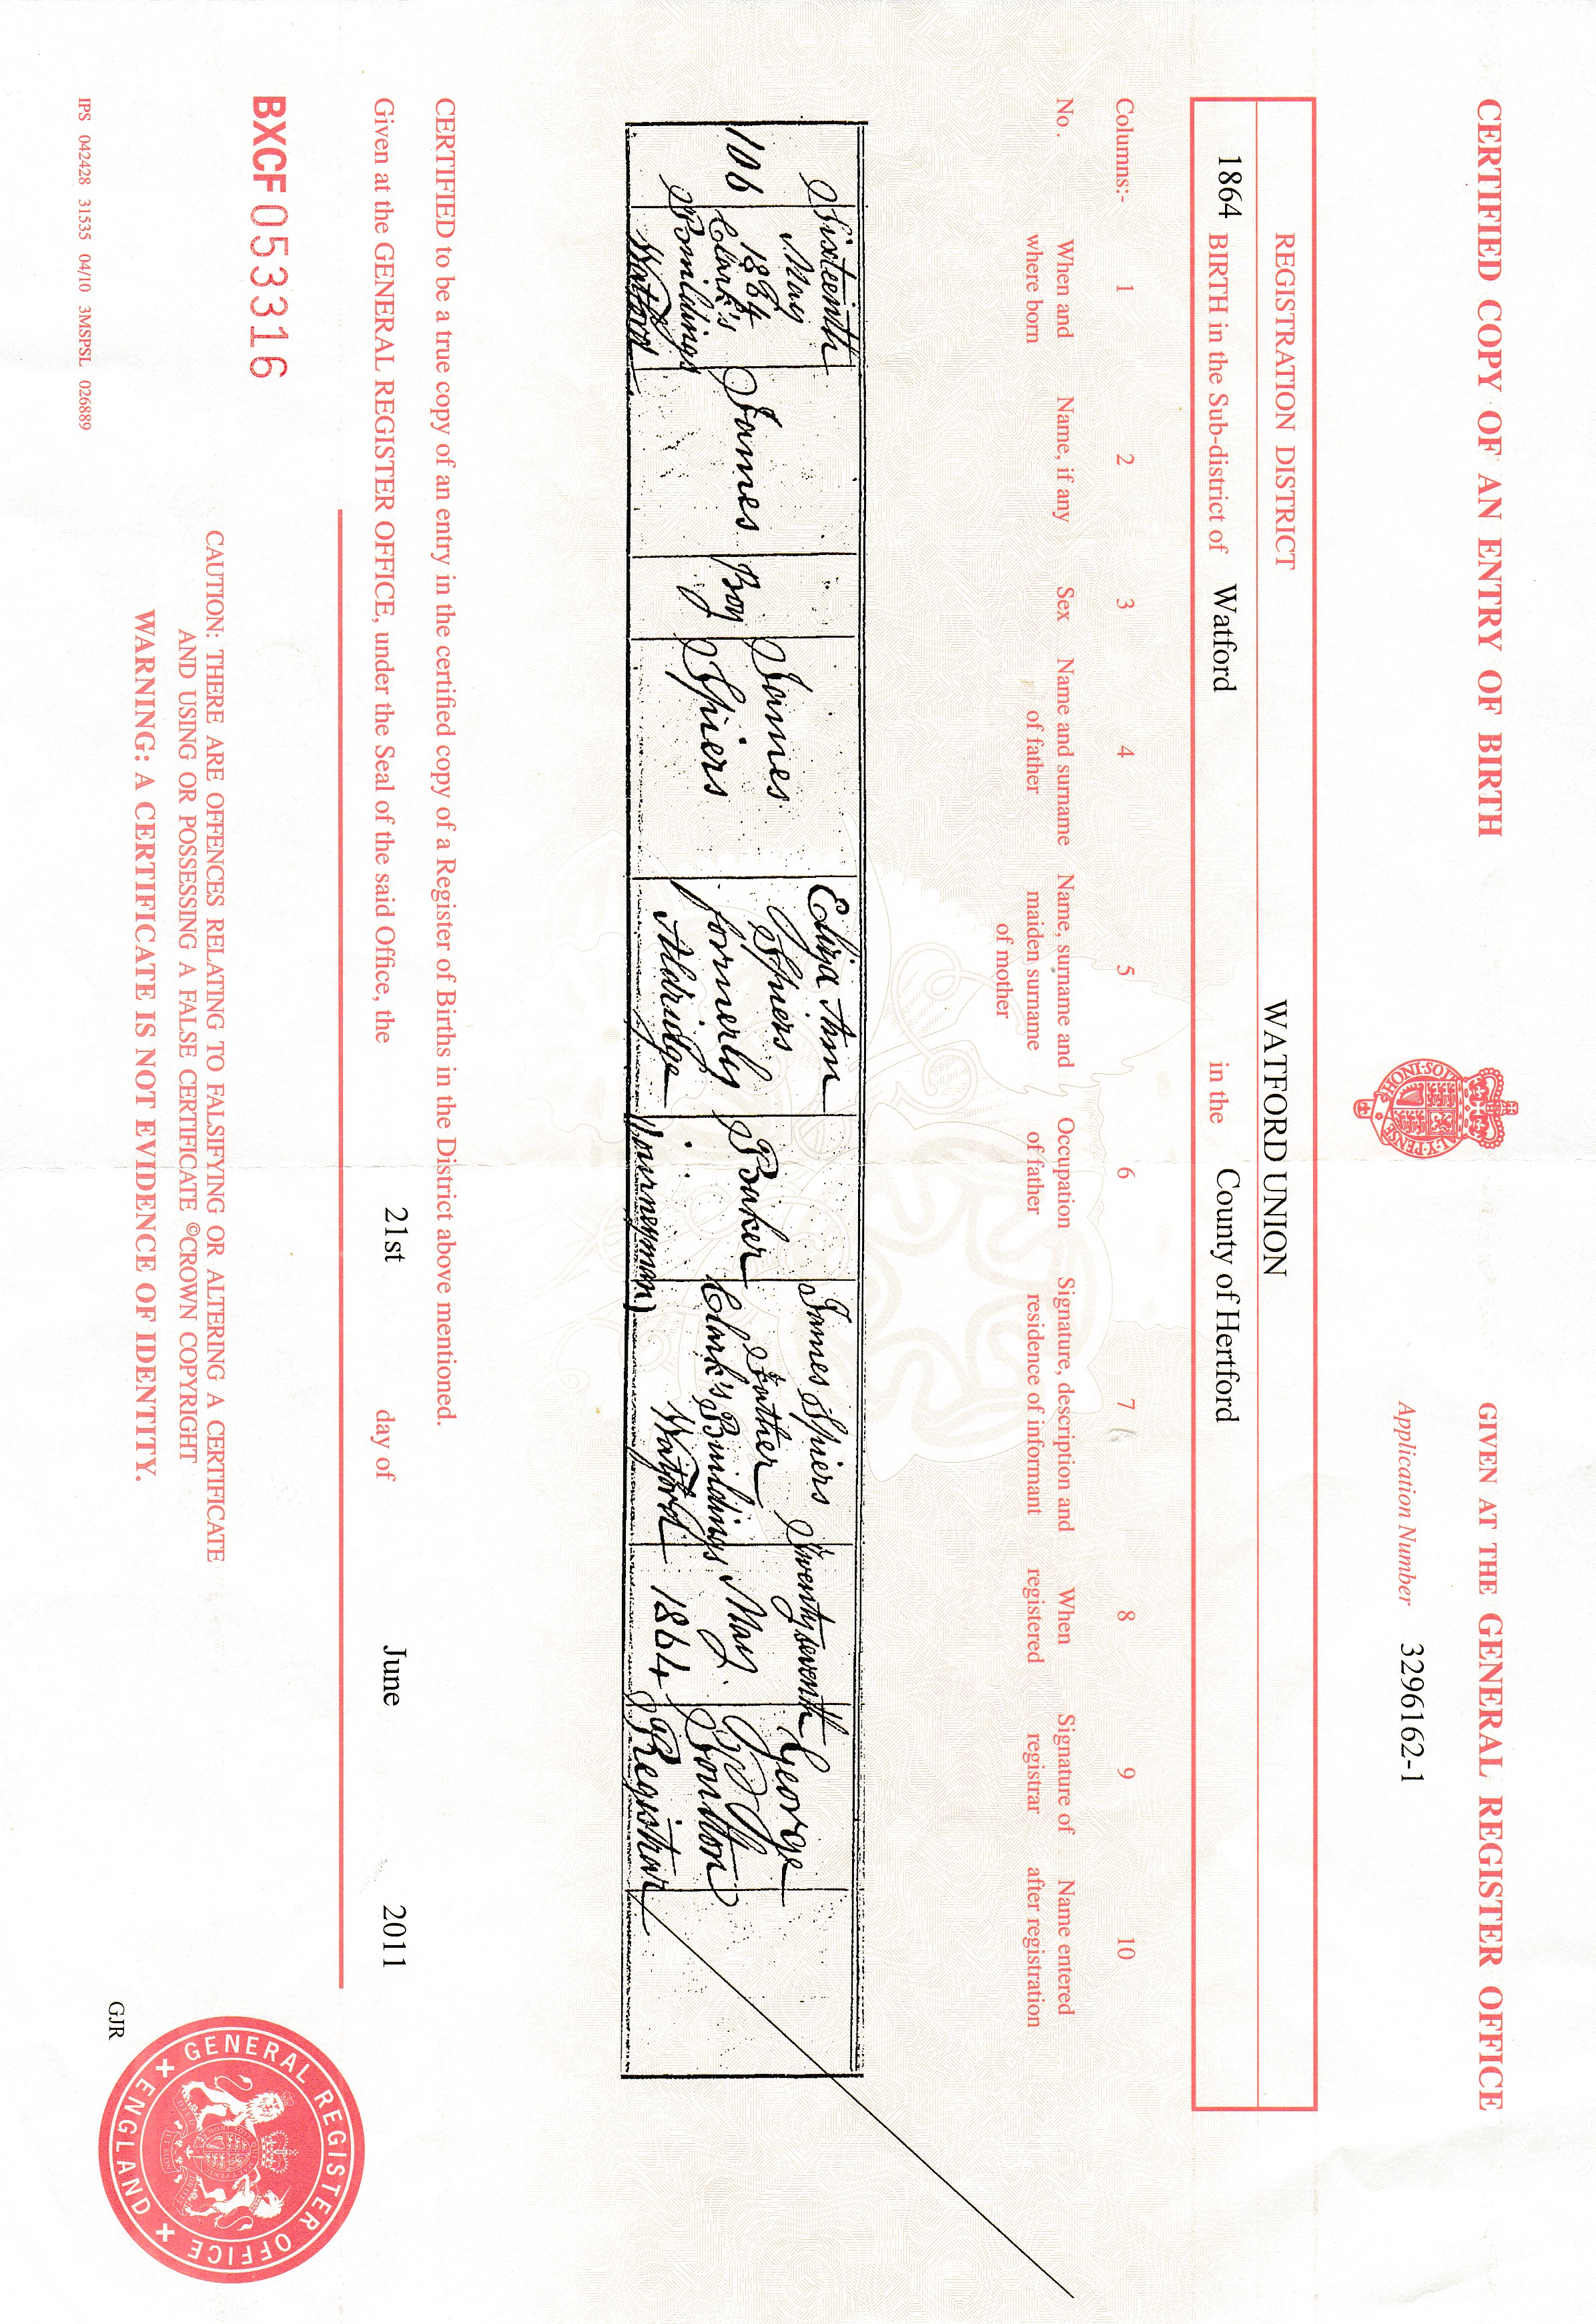 CERTIFIED COPY OF AN ENTRY OF BIRTH
GIVEN AT THE GENERAL REGISTER OFFICE
Application Number 3296162-1
REGISTRATION DISTRICT WATFORD UNION
1864 BIRTH in the Sub-district of Watford in the County of Hertford
Columns:- 1 2 3 4 5 6 7 8 9 10
No. When and where born
Name, if any
Sex
Name and surname of father
Name, surname and maiden surname of mother
Occupation of father
Signature, description and residence of informant
When registered
Signature of registrar
Name entered after registration
106
Sixteenth
May
1864
Clark's
Buildings
Watford
James
Boy
James
Spiers
Eliza Ann
Spiers
formerly
Aldridge
Baker
(Journeyman)
James Spiers
Father
Clark's Buildings
Watford
Twenty seventh
May
1864
George
Poulton
Registrar
CERTIFIED to be a true copy of an entry in the certified copy of a Register of Births in the District above mentioned.
Given at the GENERAL REGISTER OFFICE, under the Seal of the said Office, the 21st day of June 2011
BXCF 053316
CAUTION: THERE ARE OFFENCES RELATING TO FALSIFYING OR ALTERING A CERTIFICATE
AND USING OR POSSESSING A FALSE CERTIFICATE ©CROWN COPYRIGHT
WARNING: A CERTIFICATE IS NOT EVIDENCE OF IDENTITY.
GENERAL REGISTER OFFICE
ENGLAND
GJR
IPS 042428 31535 04/10 3MSPSL 026889